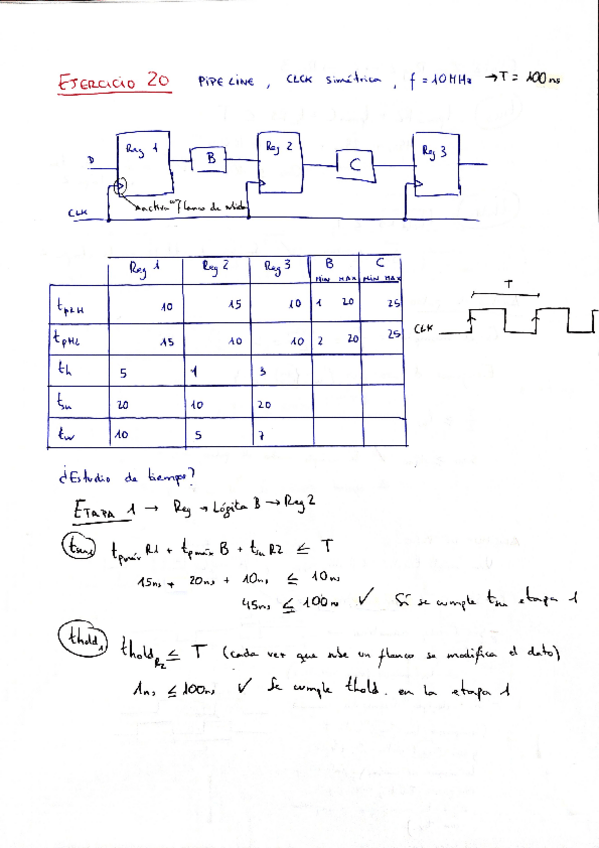 EJERCICIO 20 PIPELINE, CLCK simétrica, f = 10MHz → T = 100ns
Reg 1 B Reg 2 C Reg 3
D
CLK
"activa" flanco de subida
Reg 1 Reg 2 Reg 3 B C
MIN MAX MIN MAX
tpLH 10 15 10 1 20 25
tpHL 15 10 10 2 20 25
th 5 1 3
tsu 20 10 20
tw 10 5 7
T
CLK
¿Estudio de tiempo?
ETAPA 1 → Reg → Lógica B → Reg 2
tsu1 tpmáx R1 + tpmáx B + tsu R2 ≤ T
15ns + 20ns + 10ns ≤ 10ns
45ns ≤ 100ns ✓ Sí se cumple tsu etapa 1
thold1 tholdR2 ≤ T (cada vez que sube un flanco se modifica el dato)
1ns ≤ 100ns ✓ Se cumple thold. en la etapa 1